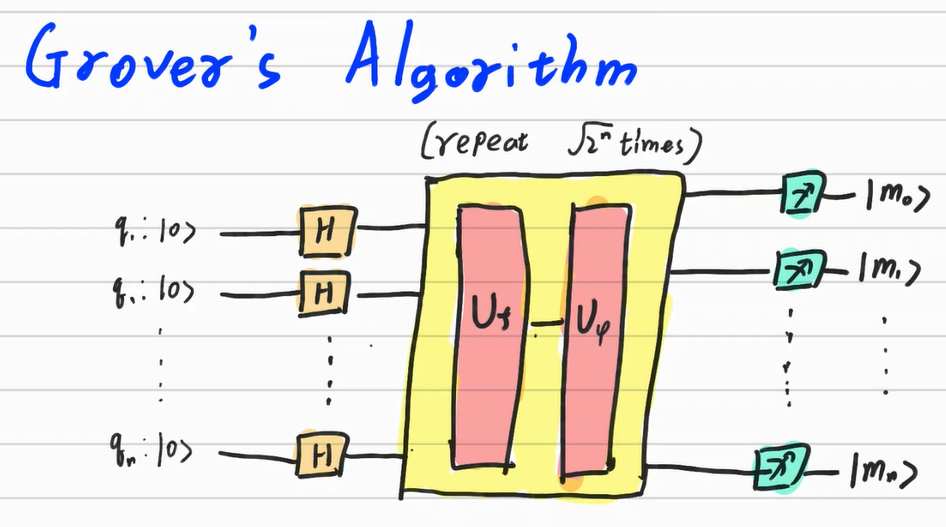 Grover's Algorithm
(repeat √2ⁿ times)
q₁:|0> H |m₀>
q₁:|0> H |m₁>
U_f U_φ
qₙ:|0> H |mₙ>